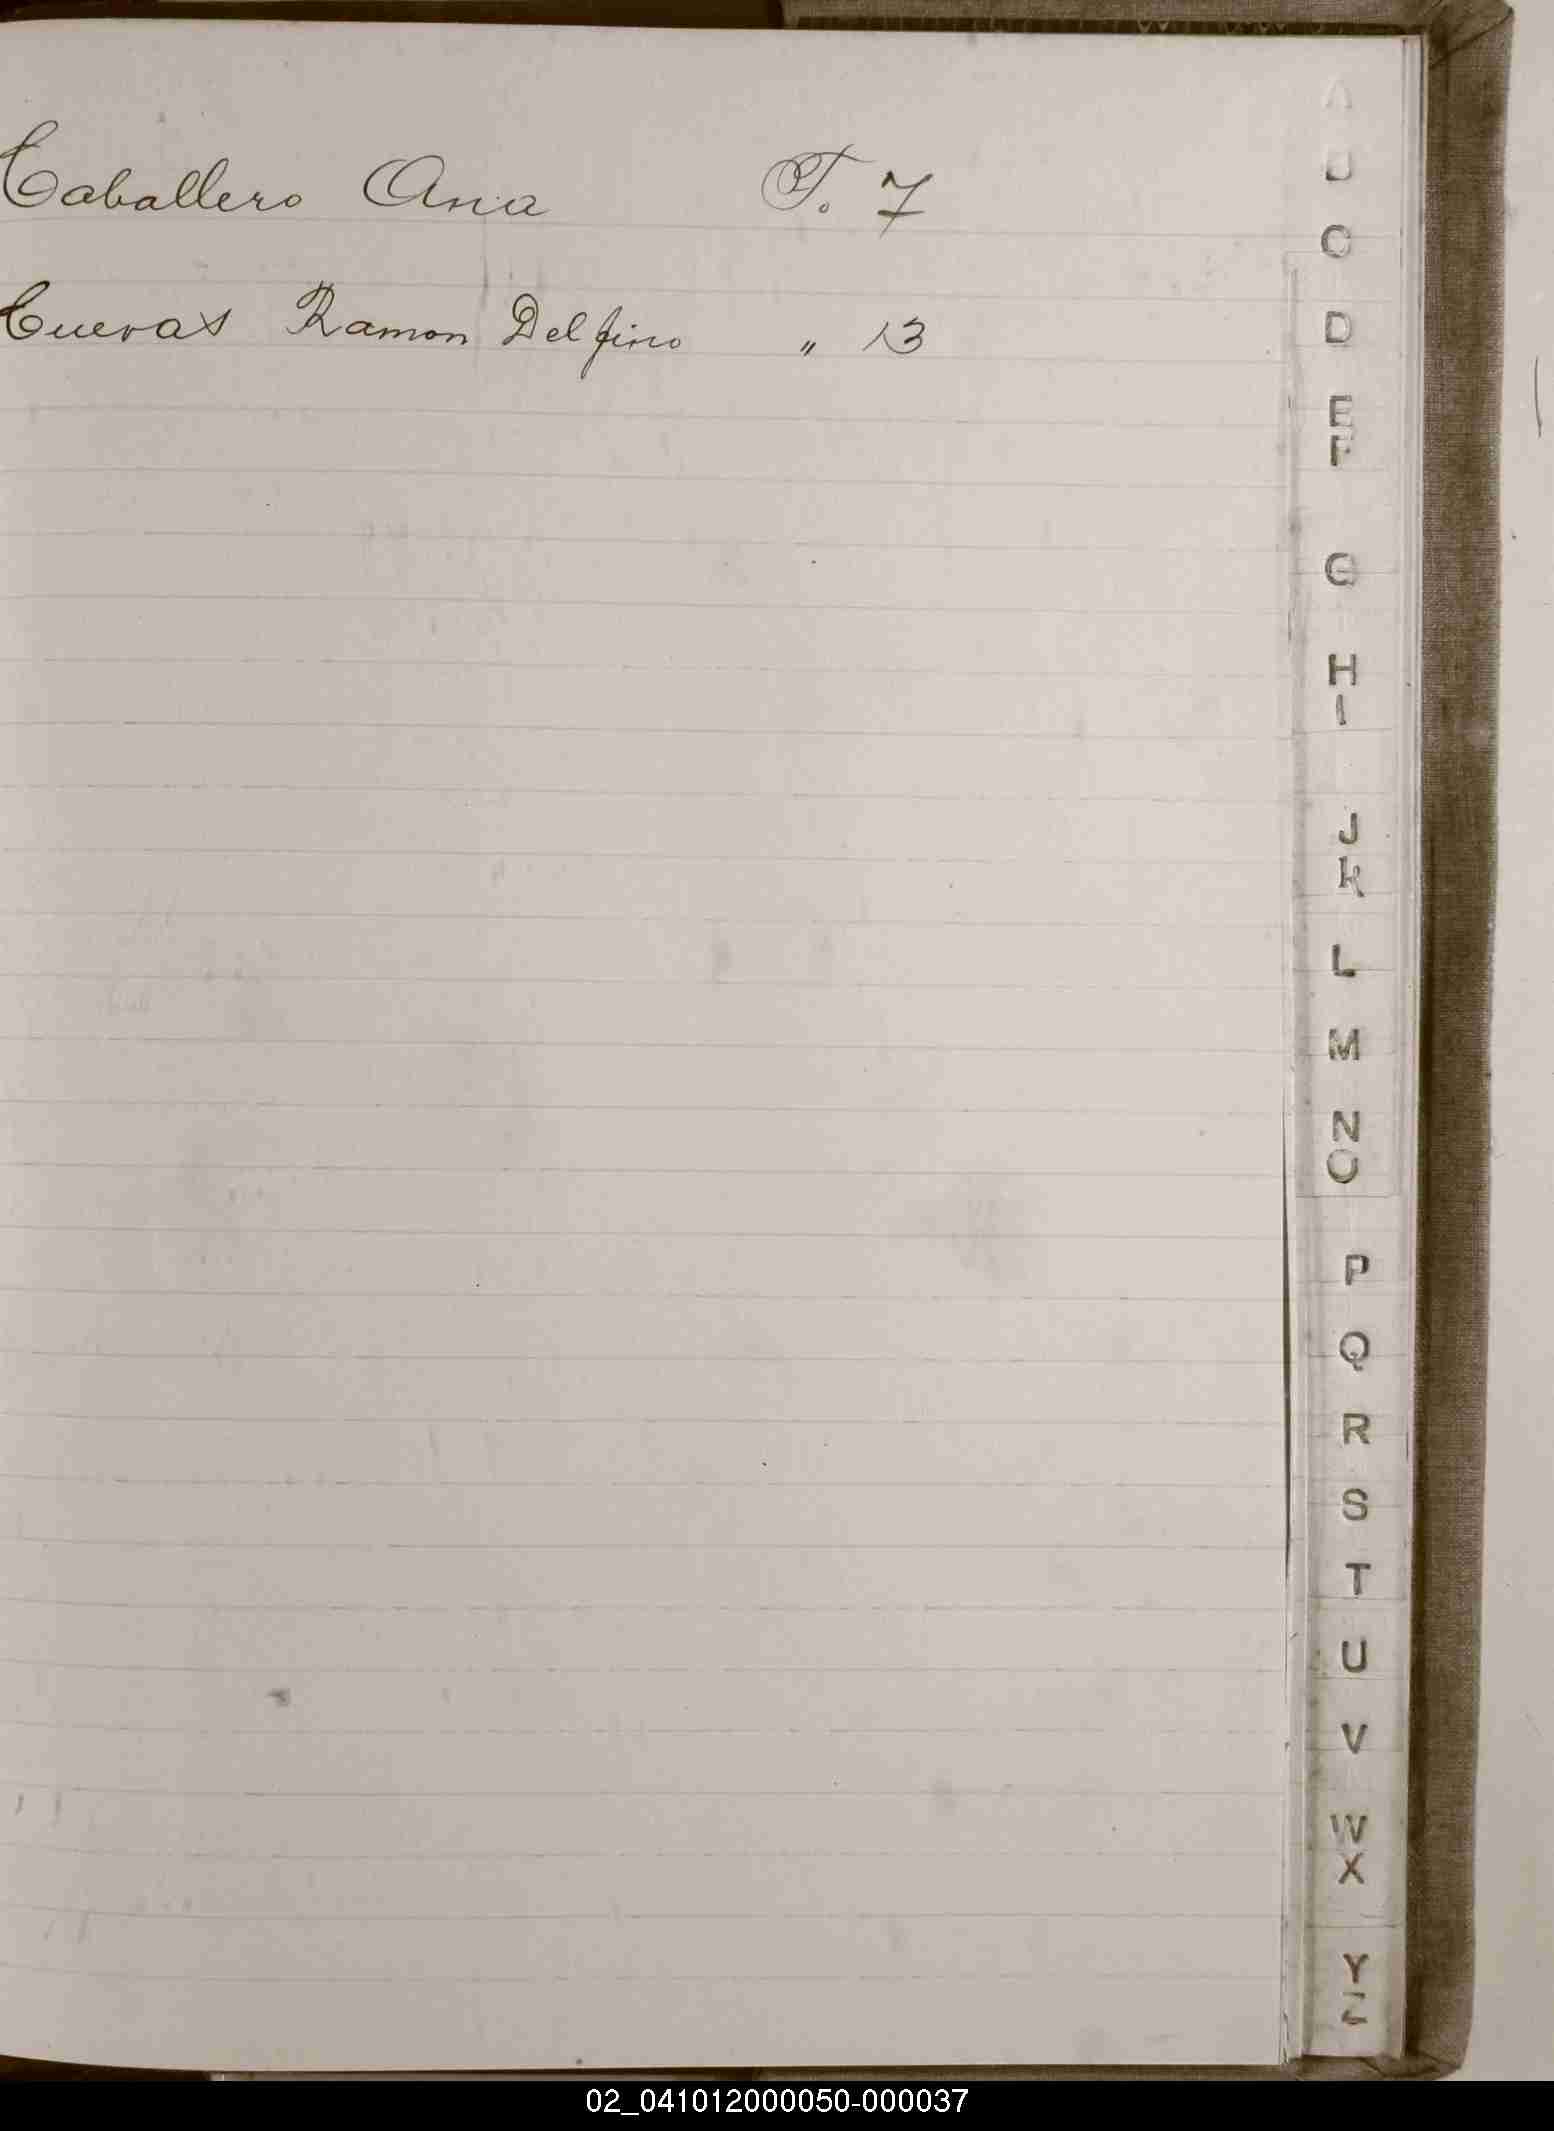 Caballero Ana F. 7
Cuevas Ramon Delfino " 13
A
B
C
D
E
F
G
H
I
J
K
L
M
N
O
P
Q
R
S
T
U
V
W
X
Y
Z
02_041012000050-000037